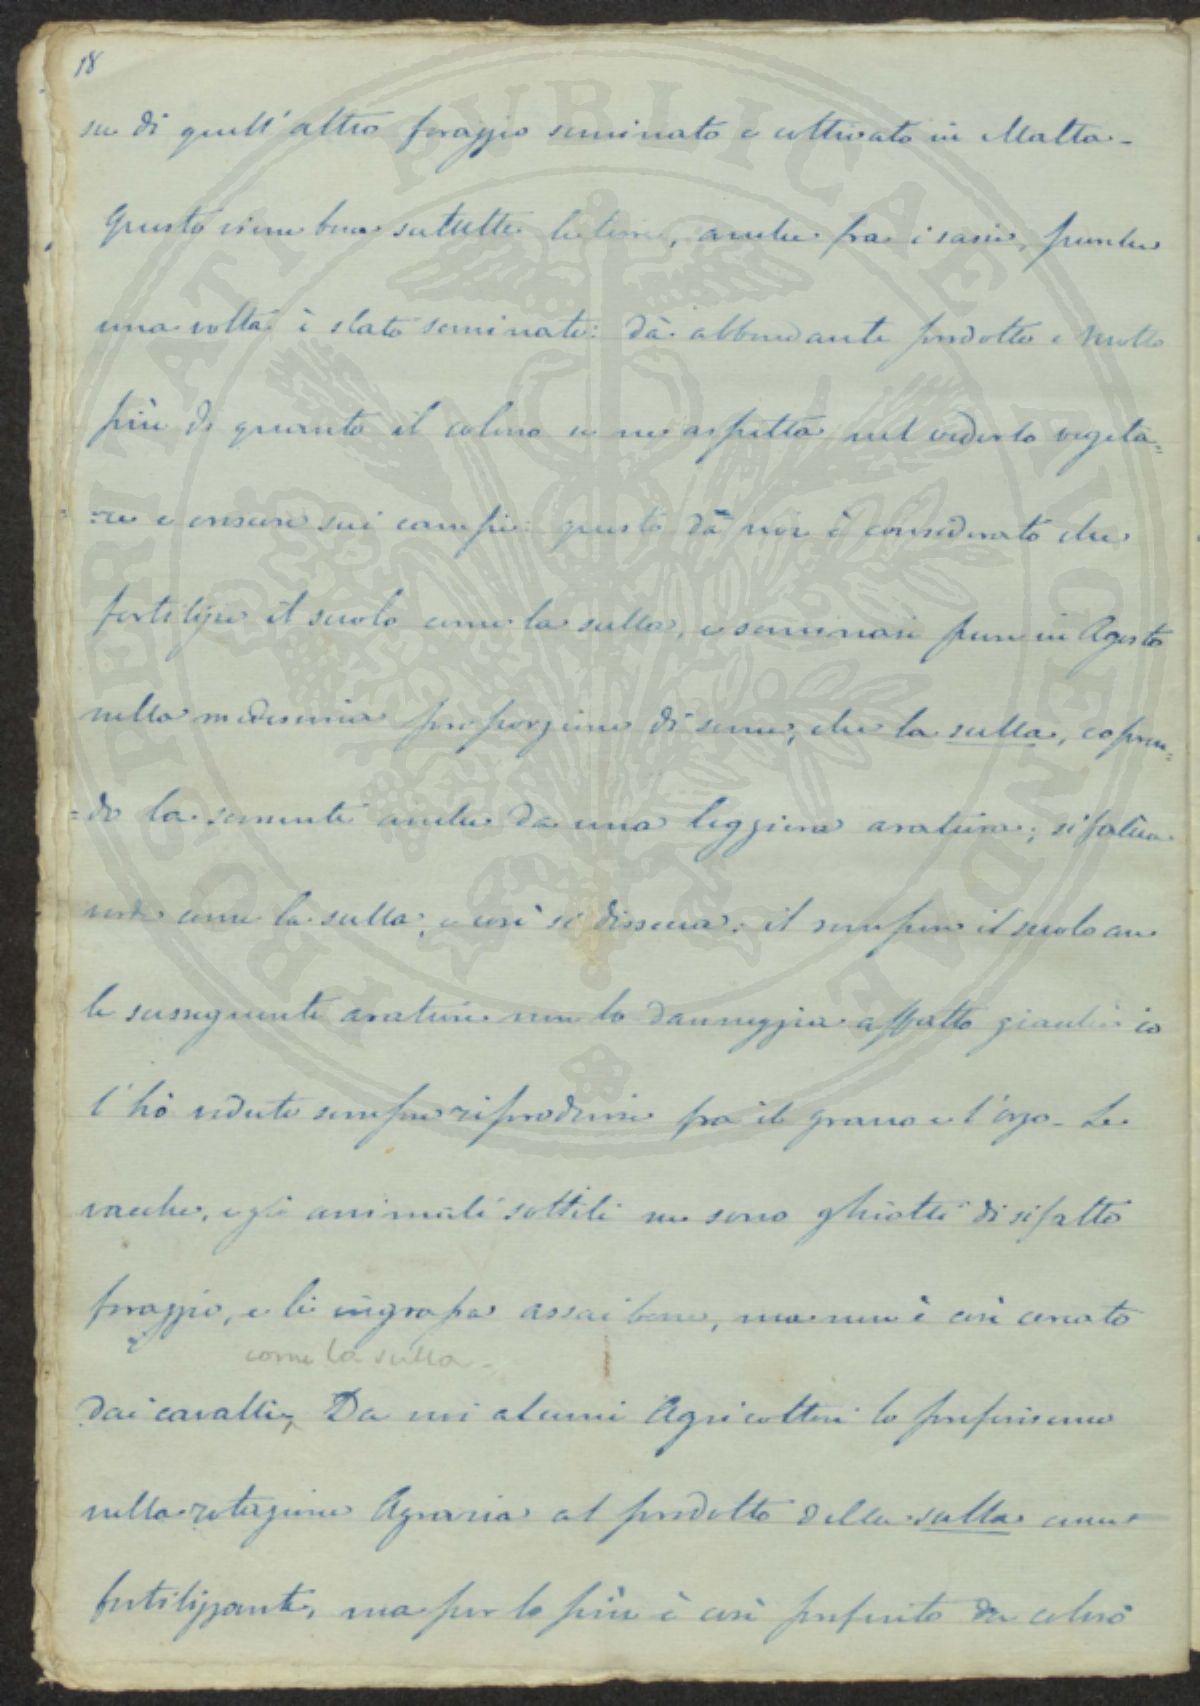 18
su di quell'altro foraggio seminato e coltivato in Malta.
Questo viene bene su tutte le terre, anche fra i sassi, purche
una volta è stato seminato: dà abbondante prodotto e molto
più di quanto il colono se ne aspetta nel vederlo vegeta=
=re e crescere sui campi: questo da noi è considerato che
fertilizzi il suolo come la sulla, e seminasi pure in Agosto
nella medesima proporzione di seme, che la sulla, copren=
=do la semente anche da una leggiera aratura; si falcia
verde come la sulla, e così si dissecca: il rompere il suolo con
le susseguenti arature non lo danneggia affatto giacchè io
l'hò veduto sempre riprodursi fra il grano e l'orzo. Le
vacche, e gli animali sottili ne sono ghiotti di sifatto
foraggio, e li ingrassa assai bene, ma non è così cercato
come la sulla.
dai cavalli, Da noi alcuni Agricoltori lo preferiscono
nella rotazione Agraria al prodotto della sulla come
fertilizzante, ma per lo più è così preferito da coloro